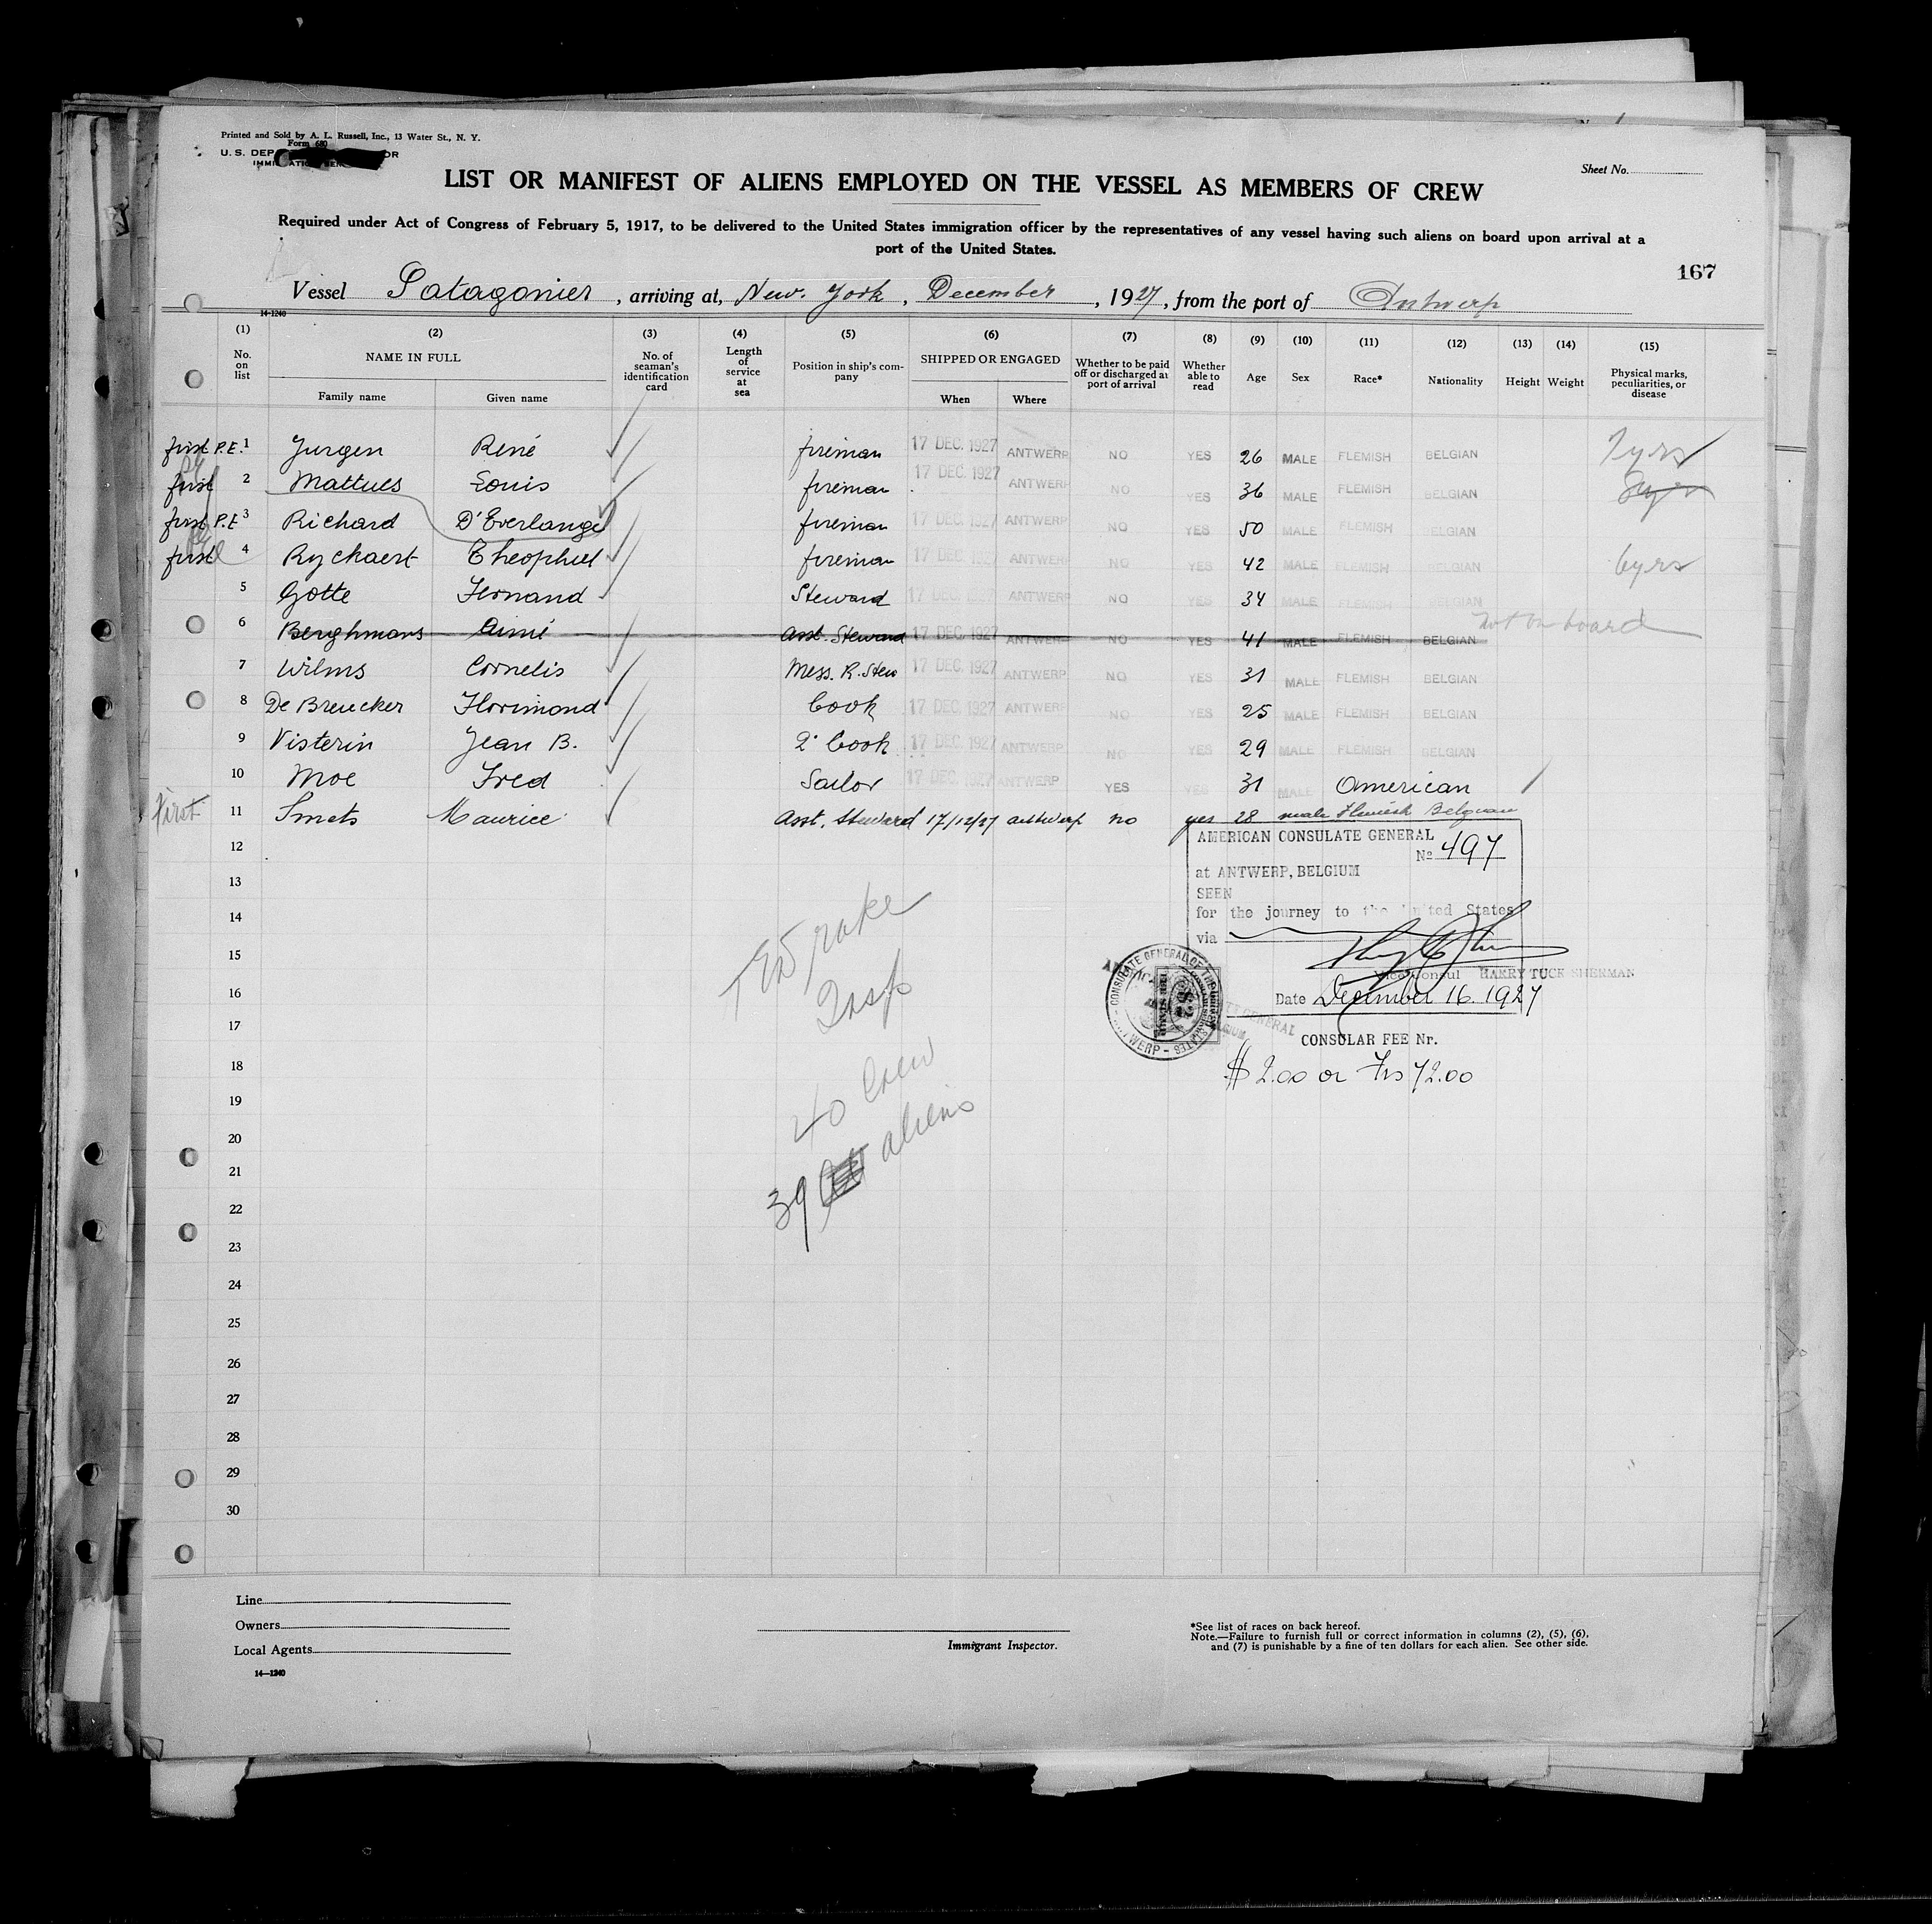 Printed and Sold by A. L. Russell, Inc., 13 Water St., N. Y.
Form 680
U. S. DEP OR
Sheet No.
LIST OR MANIFEST OF ALIENS EMPLOYED ON THE VESSEL AS MEMBERS OF CREW
Required under Act of Congress of February 5, 1917, to be delivered to the United States immigration officer by the representatives of any vessel having such aliens on board upon arrival at a
port of the United States.
167
Vessel Patagonier, arriving at, New. York, December, 1927, from the port of Antwerp
14-1240
(1) (2) (3) (4) (5) (6) (7) (8) (9) (10) (11) (12) (13) (14) (15)
No. on list NAME IN FULL No. of seaman's identification card Length of service at sea Position in ship's company SHIPPED OR ENGAGED Whether to be paid off or discharged at port of arrival Whether able to read Age Sex Race* Nationality Height Weight Physical marks, peculiarities, or disease
Family name Given name When Where
first P.E. 1 Jurgen René fireman 17 DEC. 1927 ANTWERP NO YES 26 MALE FLEMISH BELGIAN 7yrs
first 2 Mattues Louis fireman 17 DEC. 1927 ANTWERP NO YES 36 MALE FLEMISH BELGIAN
first P.E 3 Richard D'Everlange fireman 17 DEC. 1927 ANTWERP NO YES 50 MALE FLEMISH BELGIAN
first 4 Ryckaert Theophiel fireman 17 DEC. 1927 ANTWERP NO YES 42 MALE FLEMISH BELGIAN 6yrs
5 Gotte Fernand Steward 17 DEC. 1927 ANTWERP NO YES 34 MALE FLEMISH BELGIAN
6 Berghmans Aimé Asst. Steward 17 DEC. 1927 ANTWERP NO YES 41 MALE FLEMISH BELGIAN not on board
7 Wilms Cornelis Mess. R. Stew 17 DEC. 1927 ANTWERP NO YES 31 MALE FLEMISH BELGIAN
8 De Breucker Florimond Cook 17 DEC. 1927 ANTWERP NO YES 25 MALE FLEMISH BELGIAN
9 Visterin Jean B. 2° Cook 17 DEC. 1927 ANTWERP NO YES 29 MALE FLEMISH BELGIAN
10 Moe Fred Sailor 17 DEC. 1927 ANTWERP YES YES 31 MALE American
First 11 Smets Maurice Asst. Steward 17/12/27 antwerp no yes 28 male Flemish Belgian
12
13
14
15
16
17
18
19
20
21
22
23
24
25
26
27
28
29
30
AMERICAN CONSULATE GENERAL
No 497
at ANTWERP, BELGIUM
SEEN
for the journey to the United States
via
Vice Consul HARRY TUCK SHERMAN
Date December 16. 1927
CONSULAR FEE Nr.
$ 2.00 or Frs 72.00
Insp
40 Crew
39 aliens
Line
Owners
Local Agents
14—1240
Immigrant Inspector.
*See list of races on back hereof.
Note.—Failure to furnish full or correct information in columns (2), (5), (6),
and (7) is punishable by a fine of ten dollars for each alien. See other side.